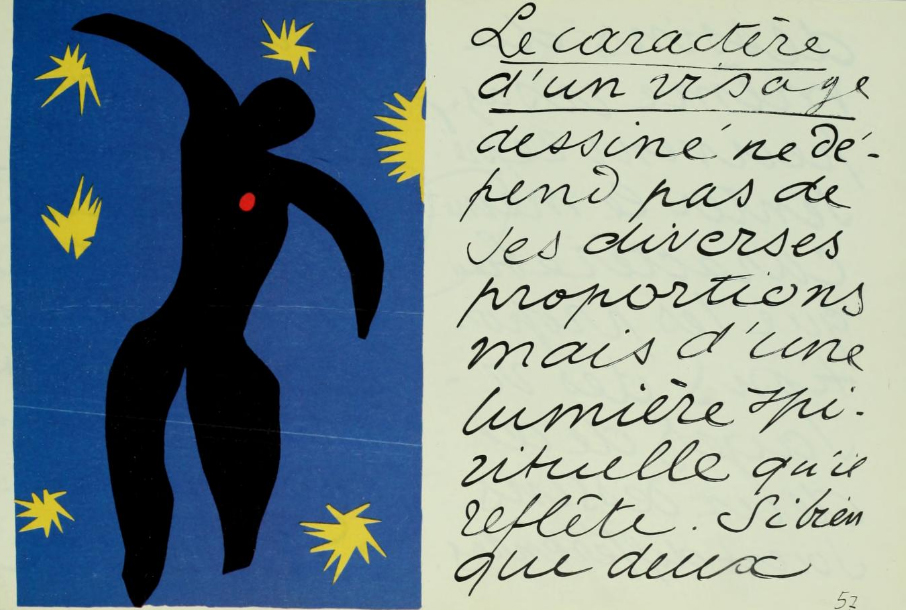 Le caractère
d'un visage
dessiné ne dé-
pend pas de
ses diverses
proportions
mais d'une
lumière spi-
rituelle qu'il
reflète. Si bien
que deux
52